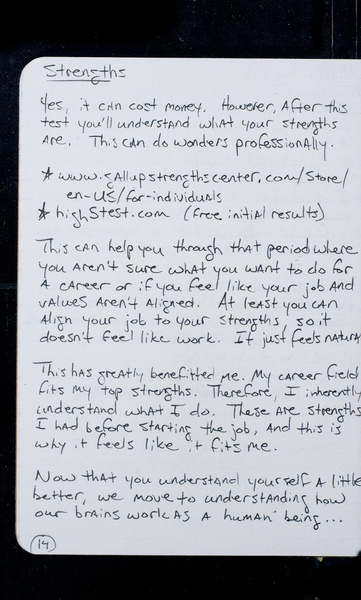 Strengths
Yes, it can cost money. However, After this
test you'll understand what your strengths
are. This can do wonders professionally.
* www.gallupstrengthscenter.com/Store/
en-US/for-individuals
* high5test.com (free initial results)
This can help you through that period where
you aren't sure what you want to do for
a career or if you feel like your job and
values aren't aligned. At least you can
align your job to your strengths, so it
doesn't feel like work. It just feels natural
This has greatly benefitted me. My career field
fits my top strengths. Therefore, I inherently
understand what I do. These are strengths
I had before starting the job, and this is
why it feels like it fits me.
Now that you understand yourself a little
better, we move to understanding how
our brains work as a human being...
14